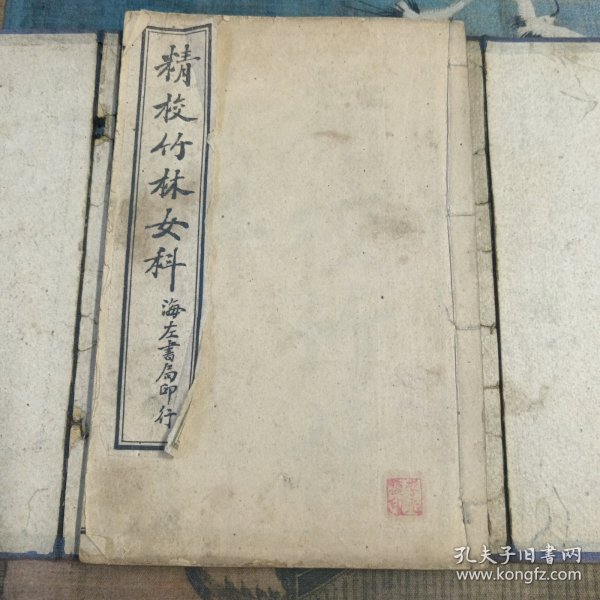 精校竹林女科
海左書局印行
孔夫子旧书网
www.kongfz.com